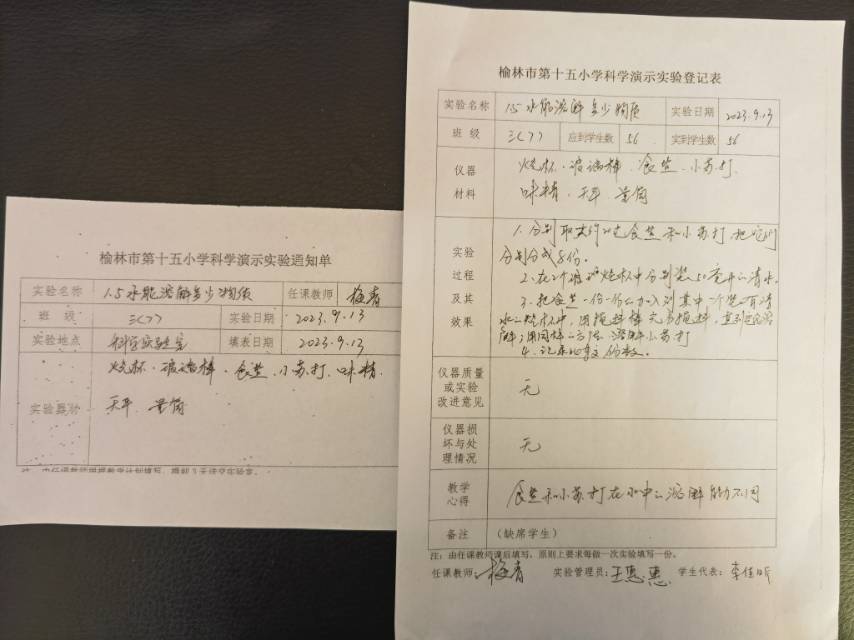 榆林市第十五小学科学演示实验通知单
实验名称 1.5水能溶解多少物质 任课教师 杨青
班 级 三(7) 实验日期 2023.9.13
实验地点 科学实验室 填表日期 2023.9.13
实验器材 烧杯、玻璃棒、食盐、小苏打、味精、
天平 量筒
注:由任课教师根据教学计划填写,提前3天送交实验室。
榆林市第十五小学科学演示实验登记表
实验名称 1.5水能溶解多少物质 实验日期 2023.9.13
班 级 三(7) 应到学生数 56 实到学生数 56
仪器材料 烧杯、玻璃棒、食盐、小苏打、
味精、天平 量筒
实验过程及其效果 1.分别取大约20克食盐和小苏打,把它们
分别分成8份。
2、在2个玻璃烧杯中分别装50毫升的清水。
3、把食盐一份一份的加入到其中一个装有清
水的烧杯中,用搅拌棒充分搅拌,直到
解,用同样的方法,溶解小苏打
4、记录 份数。
仪器质量或实验改进意见 无
仪器损坏与处理情况 无
教学心得 食盐和小苏打在水中的溶解能力不同
备注 (缺席学生)
注:由任课教师课后填写,原则上要求每做一次实验填写一份。
任课教师:杨青 实验管理员:王惠惠 学生代表:李佳昕